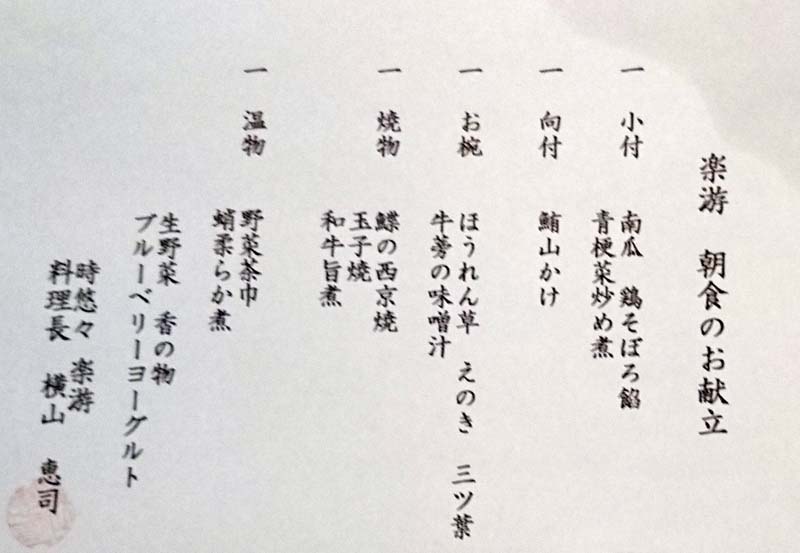 楽游 朝食のお献立
一 小付 南瓜 鶏そぼろ餡
青梗菜炒め煮
一 向付 鮪山かけ
一 お椀 ほうれん草 えのき 三ツ葉
牛蒡の味噌汁
一 焼物 鰈の西京焼
玉子焼
和牛旨煮
一 温物 野菜茶巾
蛸柔らか煮
生野菜 香の物
ブルーベリーヨーグルト
時悠々 楽游
料理長 横山 恵司